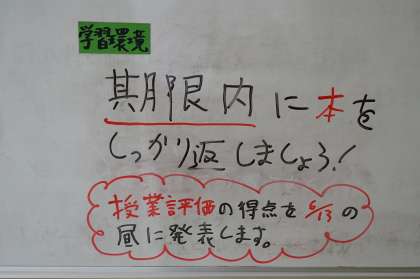 学習環境
期限内に本を
しっかり返しましょう!
授業評価の得点を6/13の
昼に発表します。